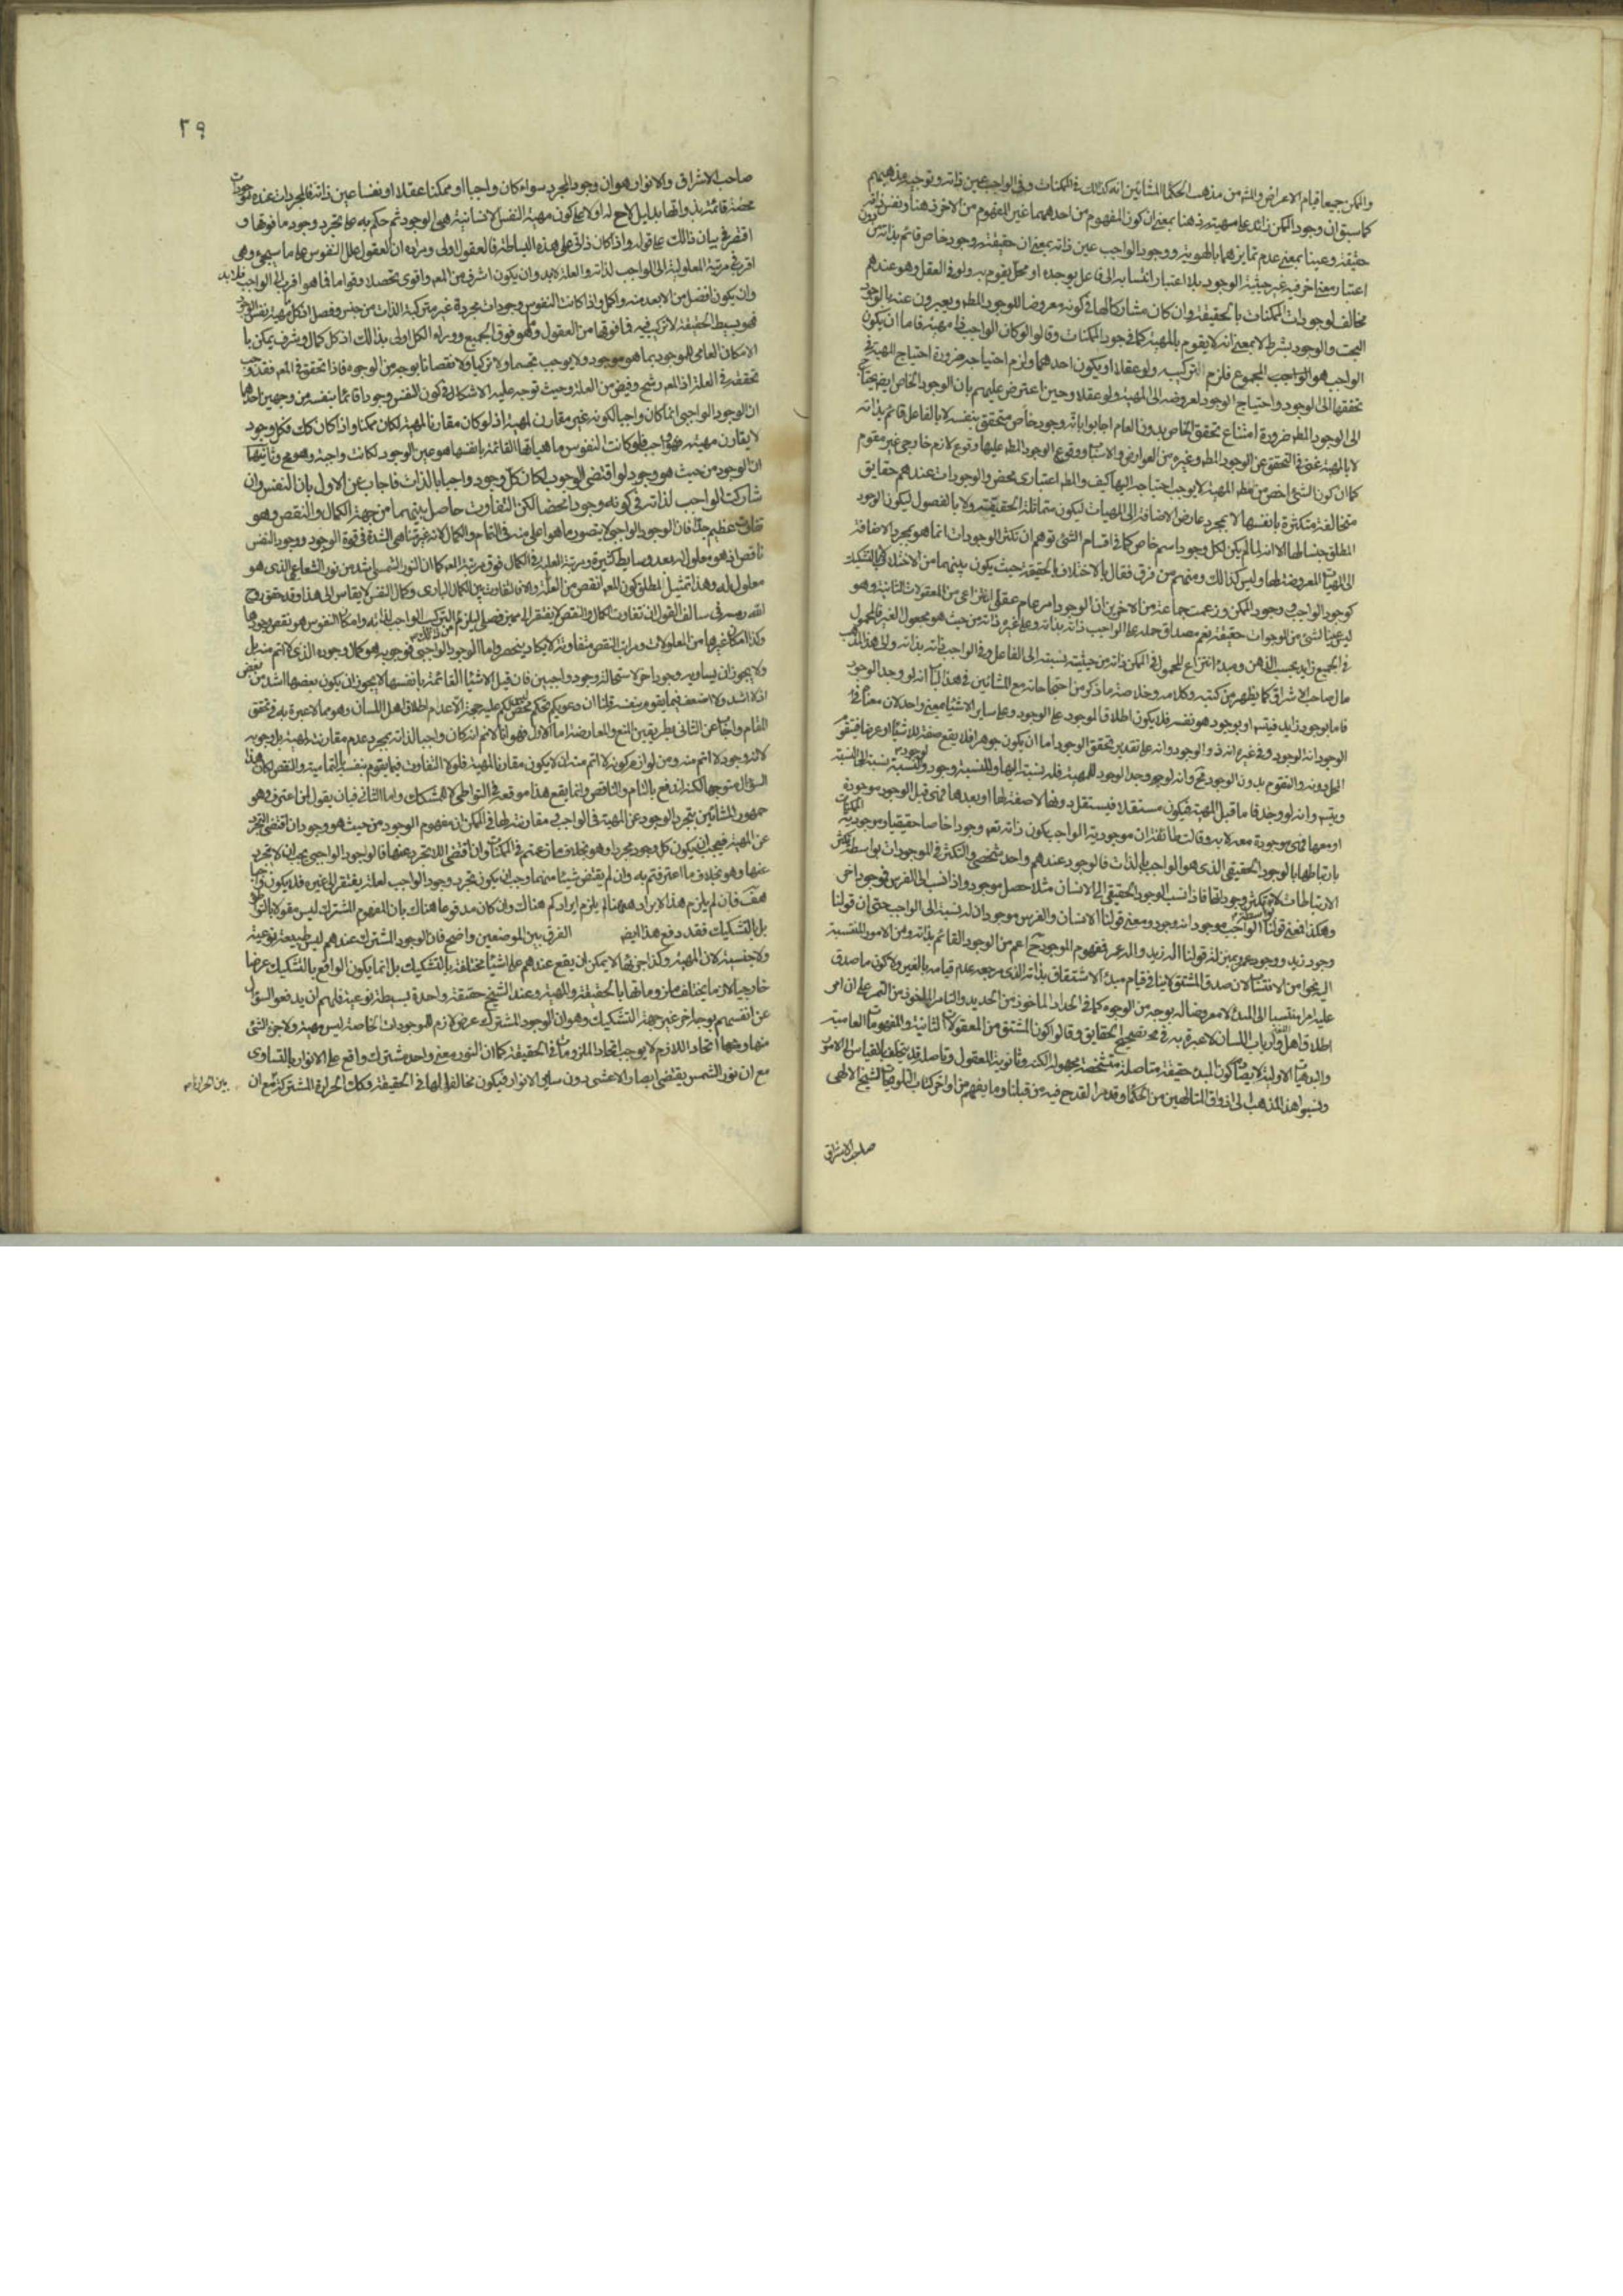 والممكن جميعا قيام الاعراض والشه من مذهب الحكما المشائين انه كذلك في الممكنات وفي الواجب عين ذاته وتوجيه مذهبهم
كما سبق ان وجود الممكن زائد على مهيته ذهنا بمعنى ان كون المفهوم من احدهما غير المفهوم من الاخر ذهنا ونفس ذاته
حقيقة وعينا بمعنى عدم تمايزهما بالهوية ووجود الواجب عين ذاته بمعنى ان حقيقته وجود خاص قائم بذاته من دون
اعتبار معنى اخر فيه غير حيثية الوجود بلا اعتبار انتسابه الى فاعل يوجده او محل يقوم به ولو في العقل وهو عندهم
مخالف لوجودات الممكنات بالحقيقة وان كان مشاركا لها في كونه معروضا للوجود المطلق ويعبرون عنه بالوجود
البحت والوجود بشرط لا بمعنى انه لا يقوم بالمهية كما في وجود الممكنات وقالوا لو كان الواجب ذا مهية فاما ان يكون
الواجب هو المجموع فلزم التركيب ولو عقلا او يكون احدهما ولزم احتياجه ضرورة احتياج المهية في
تحققها الى الوجود واحتياج الوجود لعروضه الى المهية ولو عقلا وحين اعترض عليهم بان الوجود الخاص ايضا يحتاج
الى الوجود المطلق ضرورة امتناع تحقق الخاص بدون العام اجابوا بانه وجود خاص متحقق بنفسه لا بالفاعل قائم بذاته
لا بالمهية غني في التحقق عن الوجود المطلق وغيره من العوارض والاسباب ووقوع الوجود المطلق عليها وقوع لازم خارجي غير مقوم
كما ان كون الشئ اخص من مطلق المهية لا يوجب احتياجه اليها كيف والمطلق اعتباري محض والوجودات عندهم حقايق
متخالفة متكثرة بانفسها لا بمجرد عارض الاضافة الى المهيات ليكون متماثلة الحقيقة ولا بالفصول ليكون الوجود
المطلق جنسا لها الا انه لما لم يكن لكل وجود اسم خاص كما في اقسام الشئ توهم ان تكثر الوجودات انما هو بمجرد الاضافة
الى المهيات المعروضة لها وليس كذلك ومنهم من فرق فقال بالاختلاف بالحقيقة حيث يكون بينهما من الاختلاف بالتشكيك
كوجود الواجب ووجود الممكن وزعمت جماعة من الاخرين ان الوجود امر عام عقلي انتزاعي من المعقولات الثانية وهو
ليس عينا لشئ من الموجودات حقيقة نعم مصداق حمله على الواجب ذاته بذاته وعلى غيره ذاته من حيث هو مجعول الغير فالمحمول
في الجميع زايد بحسب الذهن ومبدء انتزاع المحمول في الممكن ذاته من حيثية نسبته الى الفاعل وفي الواجب ذاته بذاته والى هذا المذهب
مال صاحب الاشراق كما يظهر من كتبه وكلامه وخلاصة ما ذكر من احتجاجاته مع المشائين في هذا الباب انه لو وجد الوجود
فاما بوجود زايد فيتسلسل او بوجود هو نفسه فلا يكون اطلاق الموجود على الوجود وعلى ساير الاشيا بمعنى واحد لان معناه في
الوجود انه الوجود وفي غيره انه ذو الوجود وانه على تقدير تحقق الوجود اما ان يكون جوهرا فلا يقع صفة للاشيا او عرضا فيتقوم
المحل دونه والتقوم بدون الوجود محال وانه لو وجد الوجود للمهية فله نسبة اليها وللنسبة وجود ولوجود النسبة نسبة الى النسبة
ويتسلسل وانه لو وجد فاما قبل المهية فيكون مستقلا فيستقل دونها لا صفة لها او بعدها فهي قبل الوجود موجودة
او معها فهي موجودة معه لا به وقالت طائفة ان موجودية الواجب بكون ذاته نعم وجودا خاصا حقيقيا وموجودية الممكنات
بارتباطها بالوجود الحقيقي الذي هو الواجب بالذات فالوجود عندهم واحد شخصي والتكثر في الموجودات بواسطة تكثر
الارتباطات لا بواسطة تكثر وجوداتها فاذا نسب الوجود الحقيقي الى الانسان مثلا حصل موجود واذا نسب الى الفرس فموجود اخر
وهكذا فمعنى قولنا الواجب موجود انه وجود ومعنى قولنا الانسان والفرس موجود ان له نسبة الى الواجب حتى ان قولنا
وجود زيد ووجود عمرو بمنزلة قولنا اله زيد واله عمرو فمفهوم الموجود ح اعم من الوجود القائم بذاته ومن الامور المنتسبة
اليه نحوا من الانتساب لان صدق المشتق لا ينافي قيام مبدء الاشتقاق بذاته الذي مرجعه عدم قيامه بالغير ولا كون ما صدق
عليه امرا منتسبا الى المبدء لا معروضا له بوجه من الوجوه كما في الحداد الماخوذ من الحديد والتامر الماخوذ من التمر على ان امر
اطلاق اهل اللغة وارباب اللسان لا عبرة به في تصحيح الحقايق وقالوا كون المشتق من المعقولات الثانية والمفهومات العامية
والبديهيات الاولية لا يصادم كون المبدء حقيقة متاصلة متشخصة مجهولة الكنه وثانوية المعقول وتاصله قد يختلف بالقياس الى الامور
ونسبوا هذا المذهب الى اذواق المتالهين من الحكما وقد مر القدح فيه من قبلنا وما يفهم من اواخر كتاب التلويحات للشيخ الالهي
صاحب الاشراق
٢٩
صاحب الاشراق والانوار هو ان وجود المجرد سواء كان واجبا او ممكنا عقلا او نفسا عين ذاته فالمجردات عنده وجودات
محضة قائمة بذواتها بدليل لاح له اولا على كون مهية النفس الانسانية هي الوجود ثم حكم به على تجرد وجود ما فوقها و
اقتصر في بيان ذلك على قوله واذا كان ذاتي على هذه البساطة فالعقول اولى ومراده ان العقول علل النفوس على ما سيجئ وهي
اقرب في مرتبة المعلولية الى الواجب لذاته والعلة لا بد وان يكون اشرف من المعلول واقوى تحصلا وقواما فما هو اقرب الى الواجب فلا بد
وان يكون افضل من الابعد منه واكل واذا كانت النفوس وجودات مجردة غير متركبة الذات من جنس وفصل اذ كل ما مهية نفس الوجود
فهو بسيط الحقيقة لا تركيب فيه فما فوقها من العقول وما هو فوق الجميع ووراء الكل اولى بذلك اذ كل كمال وشرف يمكن با
لامكان العامي للموجود بما هو موجود ولا يوجب تجسما ولا تركبا ولا نقصانا بوجه من الوجوه فاذا تحقق في المعلول فقد وجب
تحققه في العلة اذ المعلول رشح وفيض من العلة وحيث توجه عليه الاشكال في كون النفس وجودا قائما بنفسه من وجهين احدهما
ان الوجود الواجبي انما كان واجبا لكونه غير مقارن المهية اذ لو كان مقارنا لمهية لكان ممكنا واذا كان كك فكل وجود
لا يقارن مهية فهو واجب فلو كانت النفوس ماهياتها القائمة بانفسها هو عين الوجود لكانت واجبة وهو مح وثانيهما
ان الوجود من حيث هو وجود لو اقتضى الوجوب لكان كل وجود واجبا بالذات فاجاب عن الاول بان النفس وان
شاركت الواجب لذاته في كونه وجودا محضا لكن التفاوت حاصل بينهما من جهة الكمال والنقص وهو
تفاوت عظيم جدا فان الوجود الواجبي لا يتصور ما هو اعلى منه في التمام والكمال لانه غير متناهي الشدة في قوة الوجود ووجود النفس
ناقص اذ هو معلول له بعد وسايط كثيرة ومرتبة العلة في الكمال فوق مرتبة المعلول كما ان النور الشمسي اشد من نور الشعاعي الذي هو
معلول له وهذا تمثيل لمطلق كون المعلول انقص من العلة والا فالتفاوت بين الكمال الباري وكمال النفس لا يقاس الى هذا وقد حقق روح
الله رمسه في سالف القول ان تفاوت الكمال والنقص لا يفتقر الى مميز فصلي ليلزم من ذلك التركيب الواجب لذاته وامكان النفوس هو نقص وجودها
وكذا امكان غيرها من المعلولات ومراتب النقص متفاوتة لا يكاد ينحصر واما الوجود الواجبي فوجوبه هو كمال وجوده الذي لا اتم منه بل
ولا يجوز ان يساويه وجود اخر لاستحالة وجود واجبين فان قيل الاشياء القائمة بانفسها لا يجوز ان يكون بعضها اشد من بعض
اذ لا اشد ولا اضعف فيما يقوم بنفسه قلنا ان دعويكم تحكم محض ليس لكم عليه حجة الا عدم اطلاق اهل اللسان وهو مما لا عبرة به في تحقق
المقام واجاب عن الثاني بطريقين المنع والمعارضة اما الاول فهو انا لا نم انه كان واجبا لذاته بمجرد عدم مقارنته لمهية بل وجوبه
لانه وجود لا اتم منه ومن لوازم كونه لا اتم منه ان لا يكون مقارنا لمهية فلولا التفاوت فيما يقوم بنفسه بالتمامية والنقص لكان هذا
السؤال متوجها لكنه اندفع بالتام والناقص وانما يقع هذا موقعه في التواطي لا المشكك واما الثاني فبان يقول لمن اعترف وهو
جمهور المشائين بتجرد الوجود عن المهية في الواجب ومقارنته لها في الممكن ان مفهوم الوجود من حيث هو وجود ان اقتضى التجرد
عن المهية فيجب ان يكون كل وجود مجردا وهو بخلاف ما زعمتم في الممكنات وان اقتضى اللاتجرد عنها فالوجود الواجبي يجب ان لا يتجرد
عنها وهو بخلاف ما اعترفتم به وان لم يقتض شيئا منهما وجب ان يكون تجرد وجود الواجب لعلة فيفتقر الى غيره فلا يكون واجبا
هف فان لم يلزم هذا الايراد ههنا لم يلزم ايرادكم هناك وان كان مدفوعا هناك بان المفهوم المشترك ليس مقولا بالتواطؤ
بل بالتشكيك فقد دفع هذا ايضا الفرق بين الموضعين واضح فان الوجود المشترك عندهم ليس طبيعة نوعية
ولا جنسية لان المهية وكذا جزئها لا يمكن ان يقع عندهم على اشياء مختلفة بالتشكيك بل انما يكون الواقع بالتشكيك عرضا
خارجيا لازما يختلف ملزوماتها بالحقيقة والمهية وعند الشيخ حقيقة واحدة بسيطة نوعية فلهم ان يدفعوا السؤال
عن انفسهم بوجه اخر غير جهة التشكيك وهو ان الوجود المشترك عرض لازم للوجودات الخاصة ليس مهية ولا جزء الشئ
منها وجهها اتحاد اللازم لا يوجب اتحاد الملزومات في الحقيقة كما ان النور معنى واحد مشترك واقع على الانوار بالتساوي
مع ان نور الشمس يقتضي ابصار الاعشى دون ساير الانوار فيكون مخالفا لها في الحقيقة وكك الحرارة المشتركة مع ان
بين الحرارات